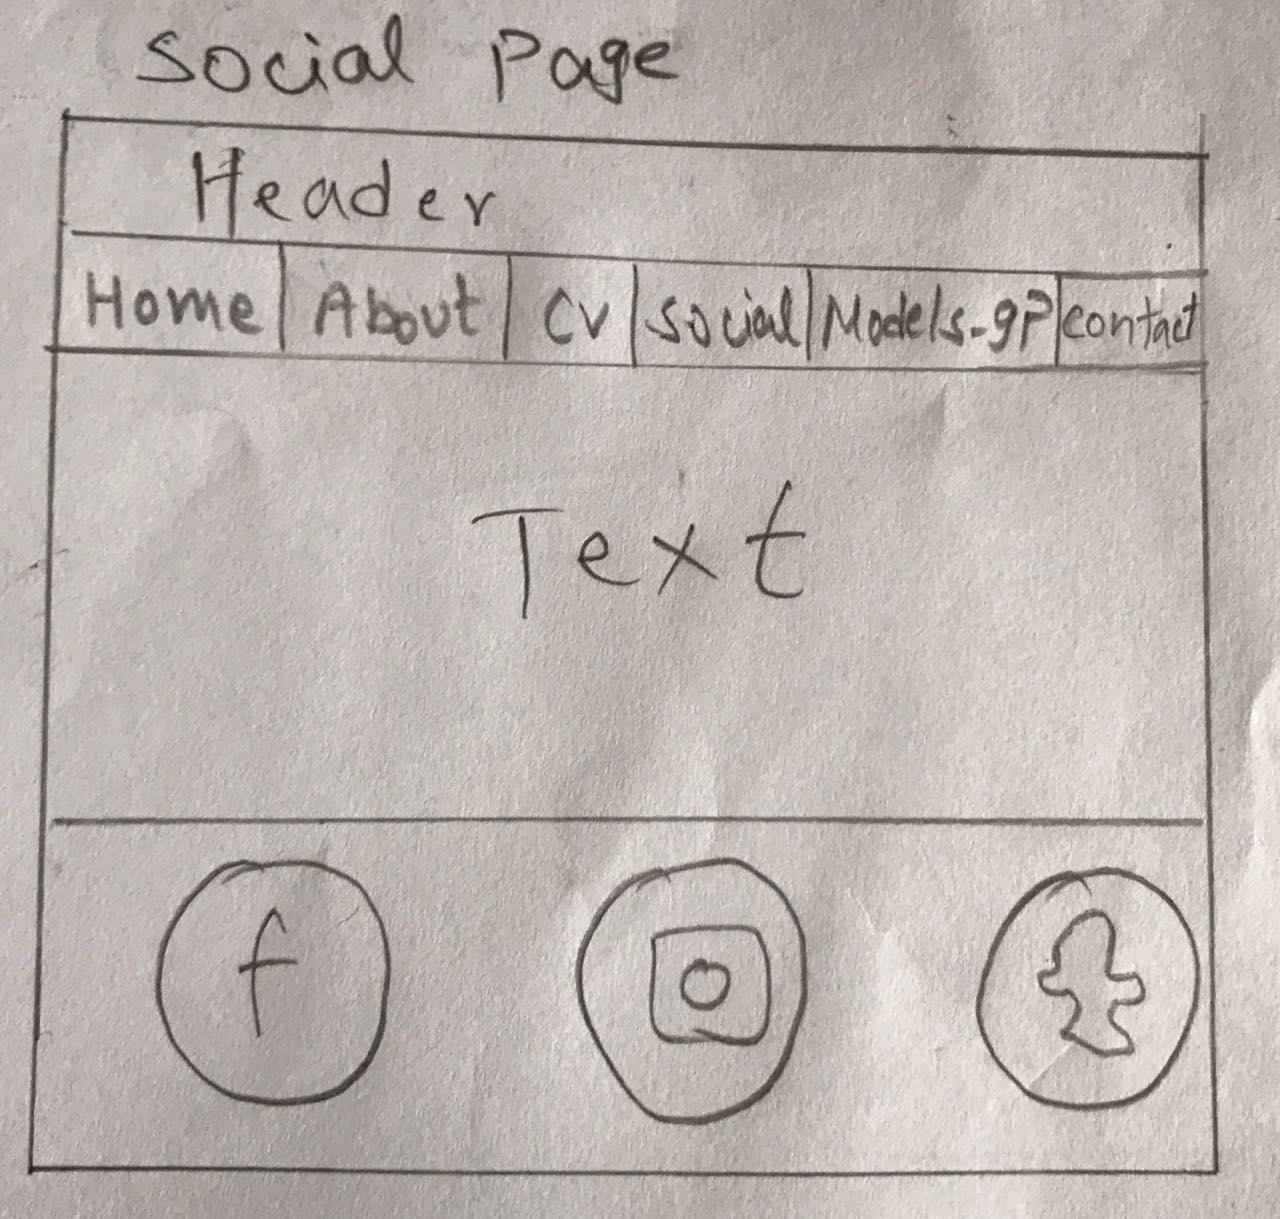 Social Page
Header
Home About CV Social Models-gP contact
Text
f